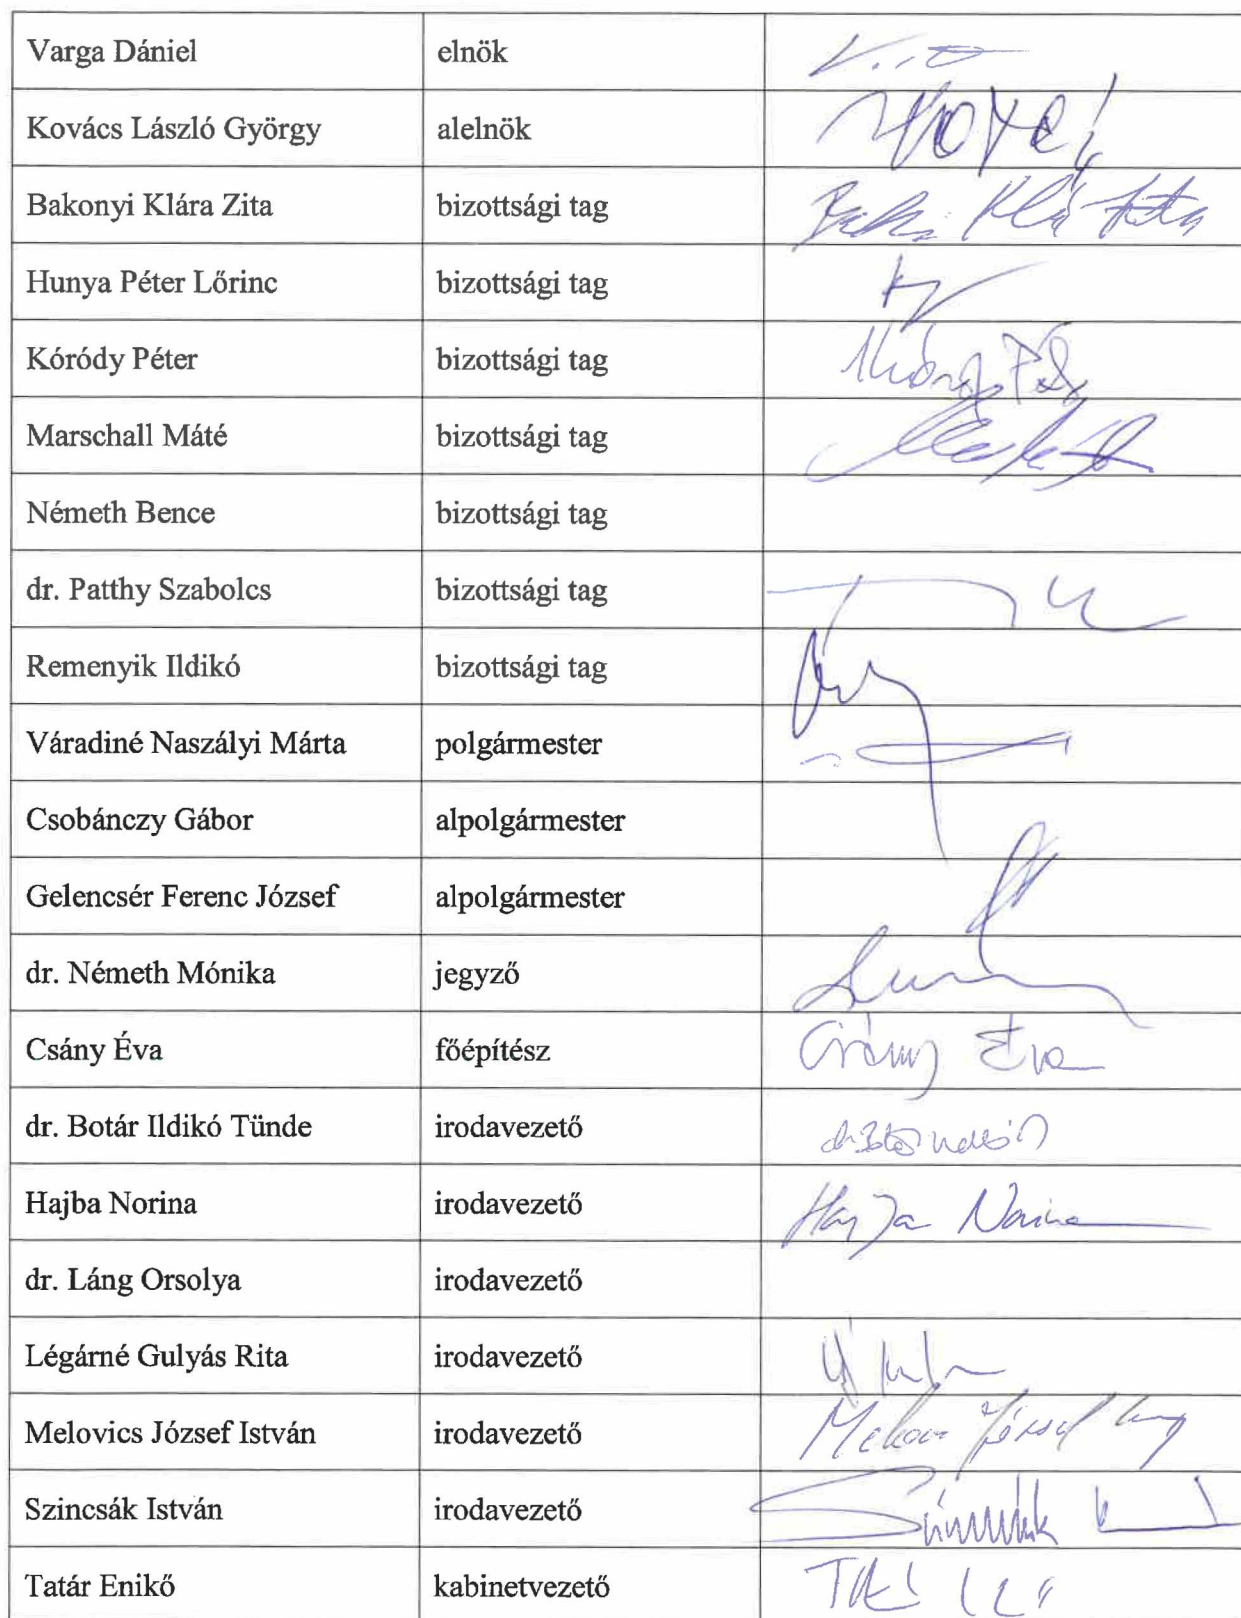 Varga Dániel elnök
Kovács László György alelnök
Bakonyi Klára Zita bizottsági tag
Hunya Péter Lőrinc bizottsági tag
Kóródy Péter bizottsági tag
Marschall Máté bizottsági tag
Németh Bence bizottsági tag
dr. Patthy Szabolcs bizottsági tag
Remenyik Ildikó bizottsági tag
Váradiné Naszályi Márta polgármester
Csobánczy Gábor alpolgármester
Gelencsér Ferenc József alpolgármester
dr. Németh Mónika jegyző
Csány Éva főépítész Csány Éva
dr. Botár Ildikó Tünde irodavezető
Hajba Norina irodavezető Hajba Norina
dr. Láng Orsolya irodavezető
Légárné Gulyás Rita irodavezető
Melovics József István irodavezető
Szincsák István irodavezető
Tatár Enikő kabinetvezető